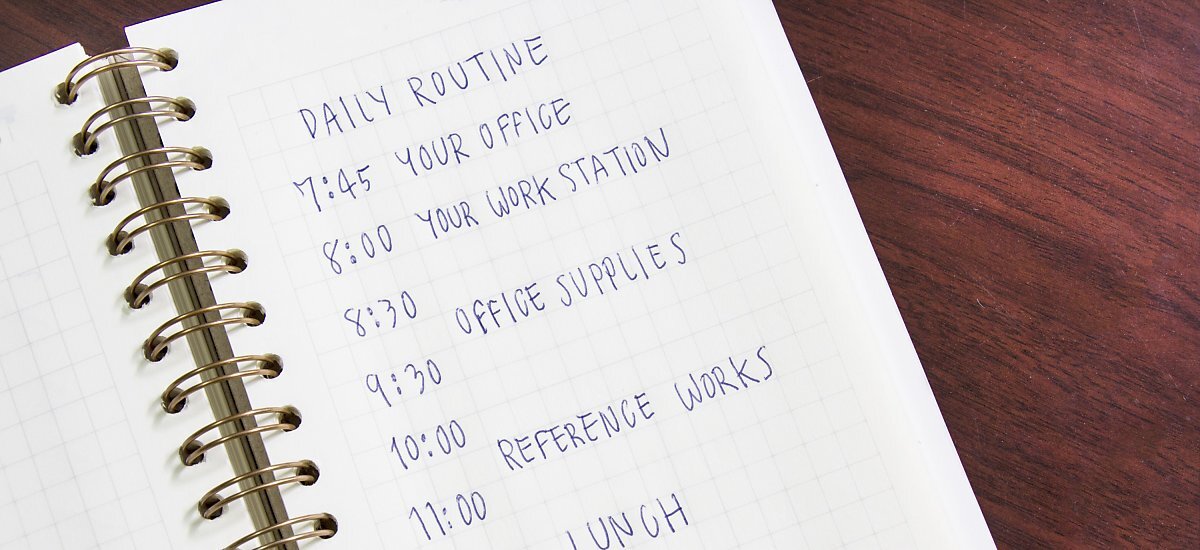 DAILY ROUTINE
7:45 YOUR OFFICE
8:00 YOUR WORKSTATION
8:30 OFFICE SUPPLIES
9:30
10:00 REFERENCE WORKS
11:00
LUNCH